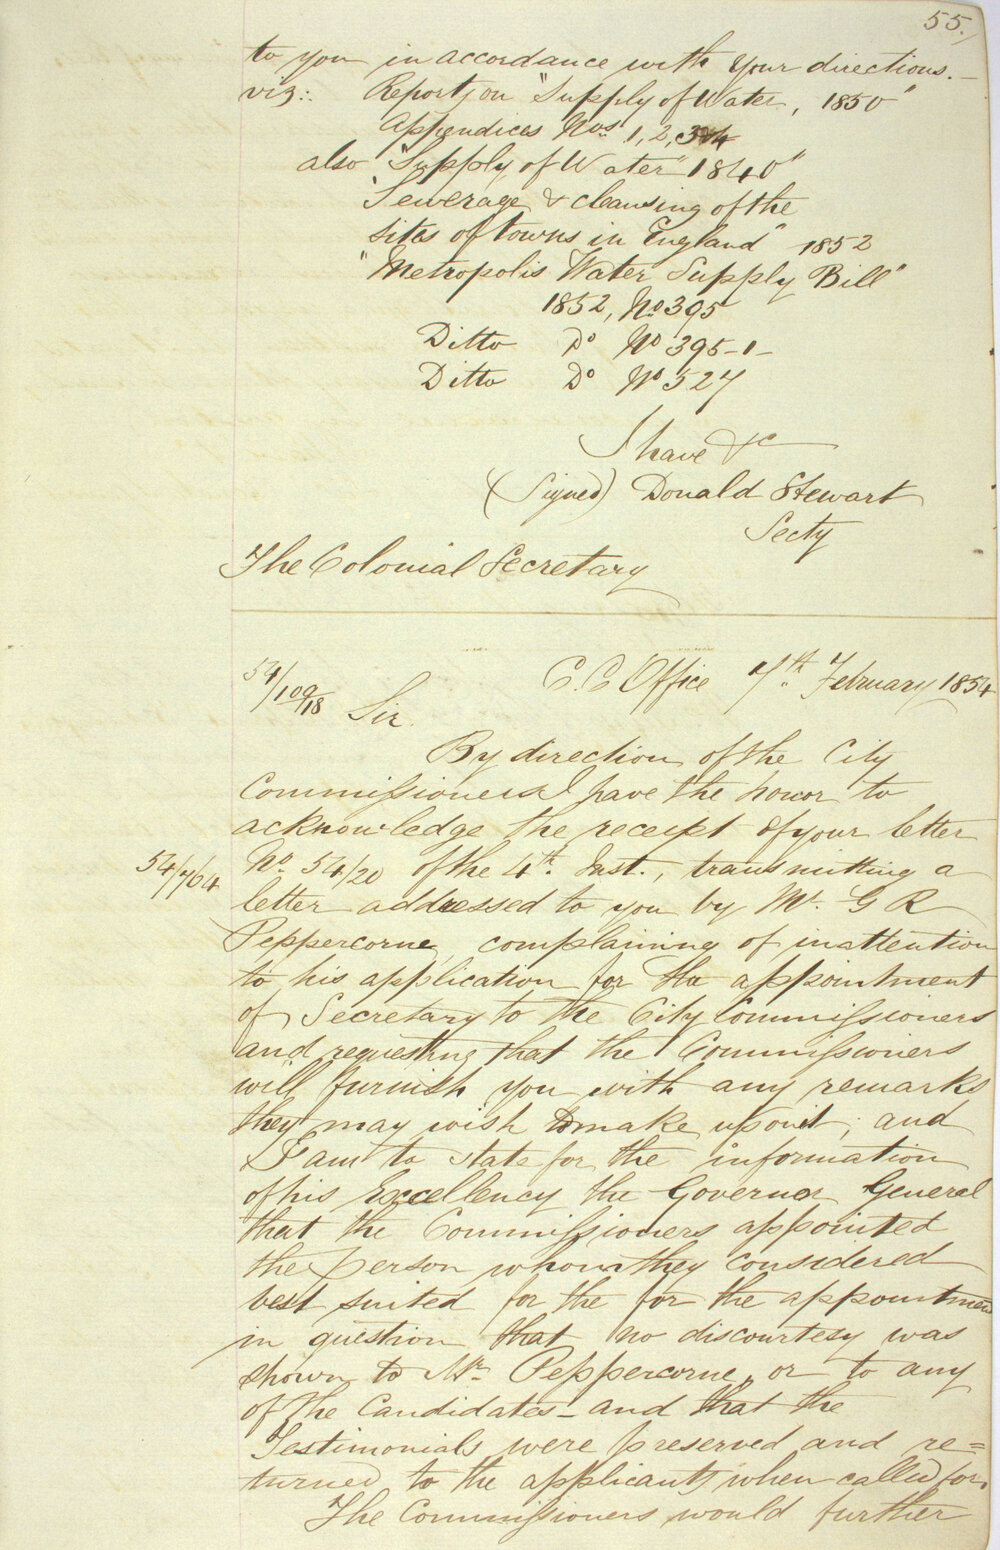 55.
to you in accordance with your directions.—
viz:: Report on "Supply of Water, 1850"
Appendices Nos 1, 2, 3 & 4
also "Supply of Water" 1840"
"Sewerage & cleansing of the
sites of towns in England" 1852
"Metropolis Water Supply Bill"
1852, No 395
Ditto Do No 395-1-
Ditto Do No 527
I have &c
(Signed) Donald Stewart
Secty
The Colonial Secretary
54/109/18
C. C Office 7th. February 1854
Sir.
By direction of the City
Commissioners I have the honor to
acknowledge the receipt of your letter
54/764
No. 54/20 of the 4th. Inst., transmitting a
letter addressed to you by Mr. G R
Peppercorne, complaining of inattention
to his application for the appointment
of Secretary to the City Commissioners
and requesting that the Commissioners
will furnish you with any remarks
they may wish to make upon it; and
I am to state for the information
of his Excellency the Governor General
that the Commissioners appointed
the Person whom they considered
best suited for the for the appointment
in question that no discourtesy was
shown to Mr. Peppercorne, or to any
of the Candidates – and that the
Testimonials were preserved and re=
turned to the applicants when called for.
The Commissioners would further